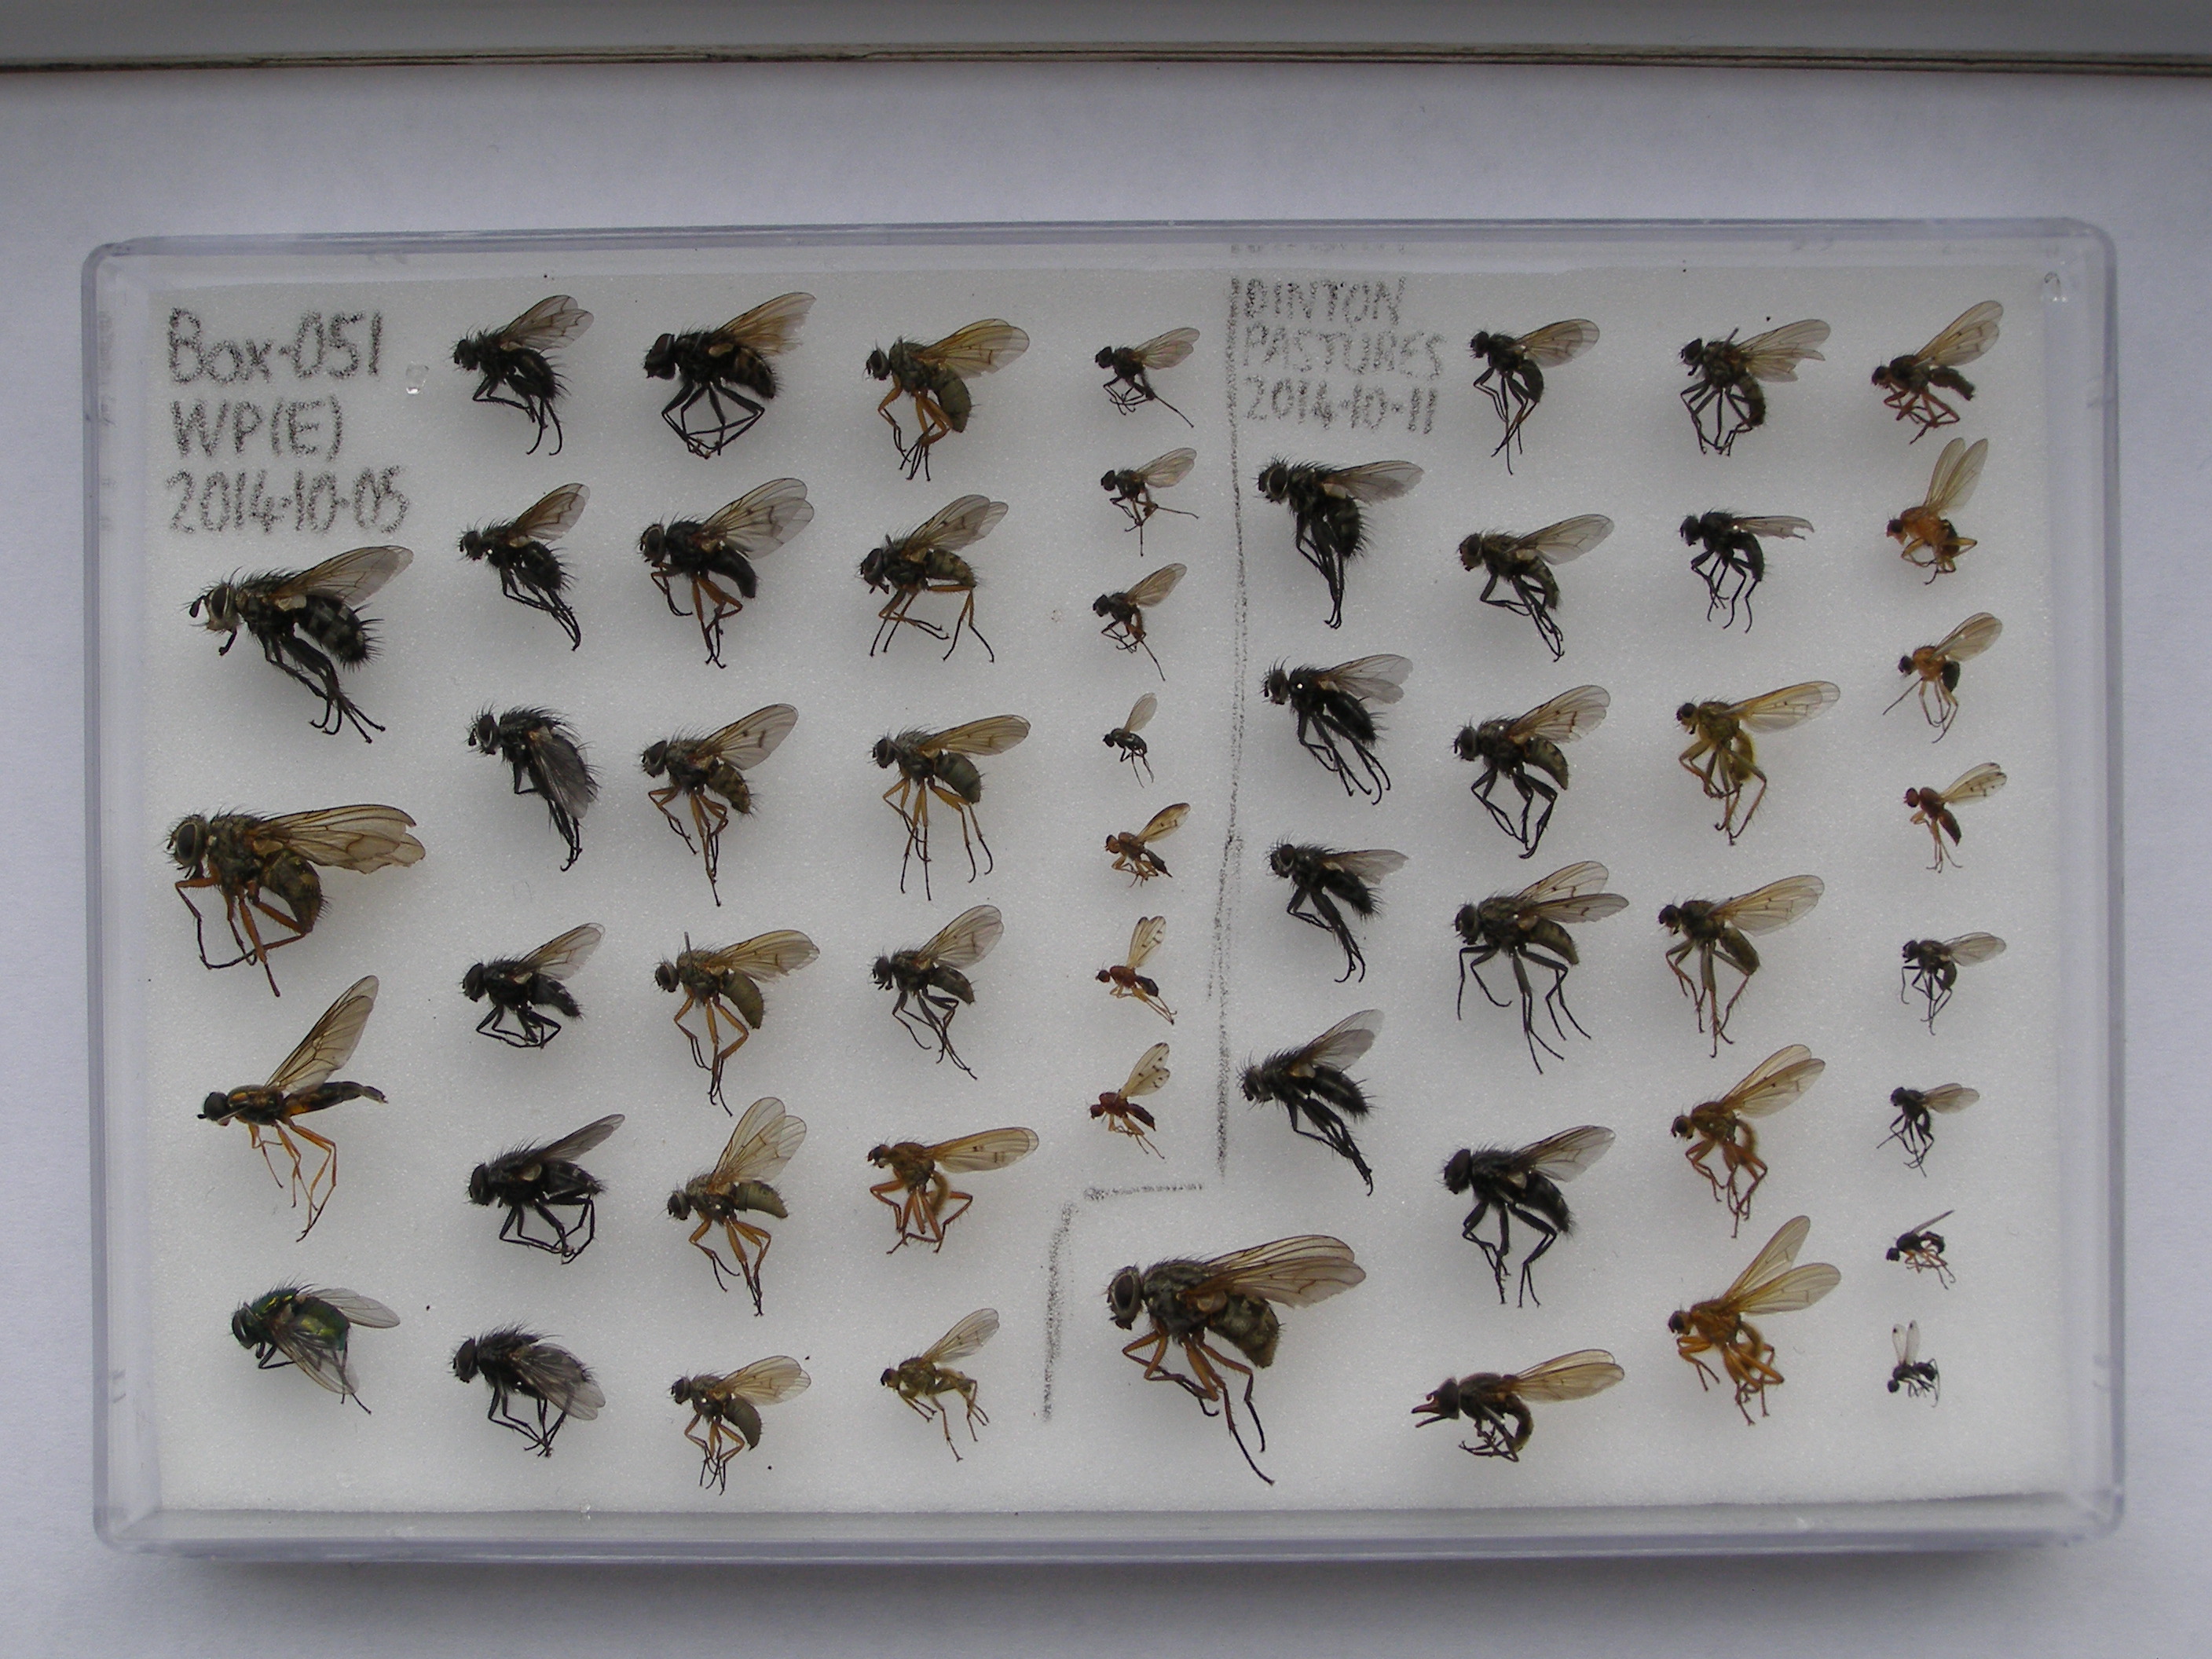 Box-051
WP(E)
2014-10-05
DINTON
PASTURES
2014-10-11